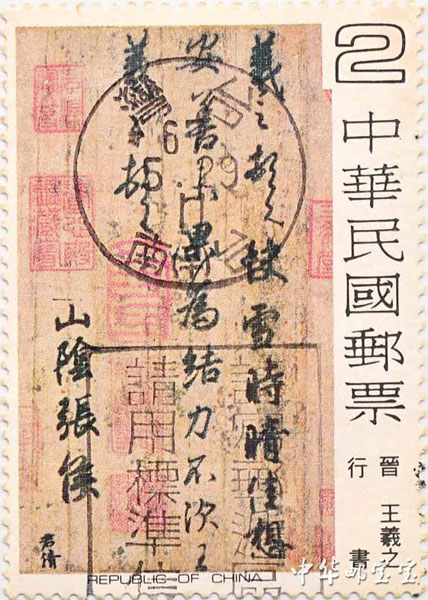 2
中華民國郵票
晉 王羲之
行書
羲之頓首快雪時晴佳想
安善未果為結力不次王
羲之頓首
山陰張侯
君倩
請用標準
REPUBLIC OF CHINA
中华邮宝宝